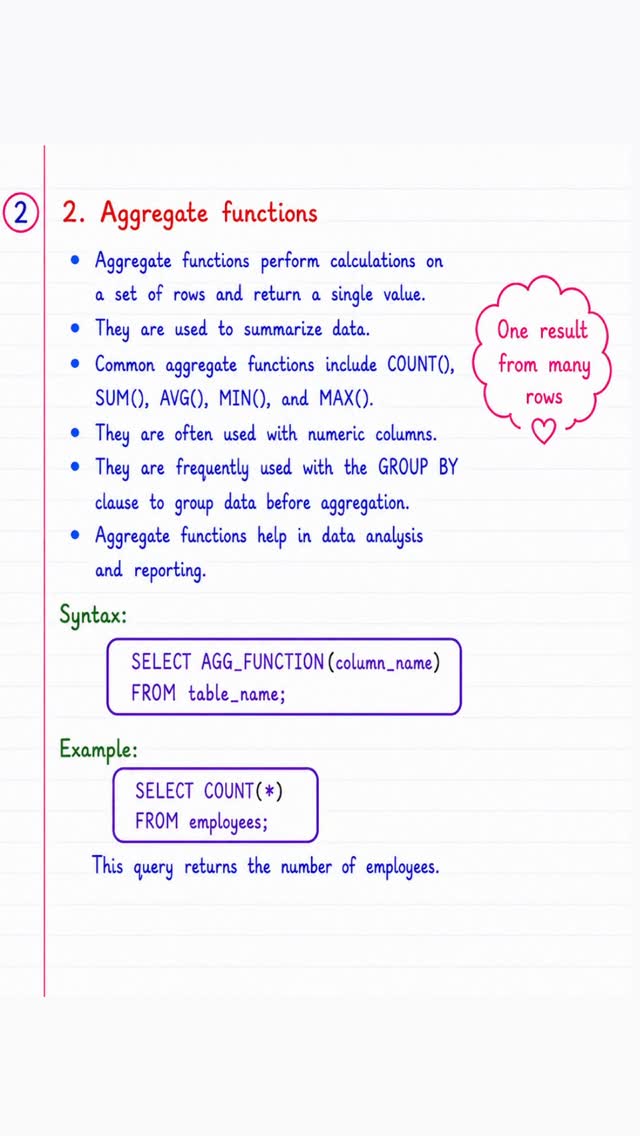 2
2. Aggregate functions
• Aggregate functions perform calculations on
a set of rows and return a single value.
• They are used to summarize data.
• Common aggregate functions include COUNT(),
SUM(), AVG(), MIN(), and MAX().
• They are often used with numeric columns.
• They are frequently used with the GROUP BY
clause to group data before aggregation.
• Aggregate functions help in data analysis
and reporting.
One result
from many
rows
Syntax:
SELECT AGG_FUNCTION(column_name)
FROM table_name;
Example:
SELECT COUNT(*)
FROM employees;
This query returns the number of employees.